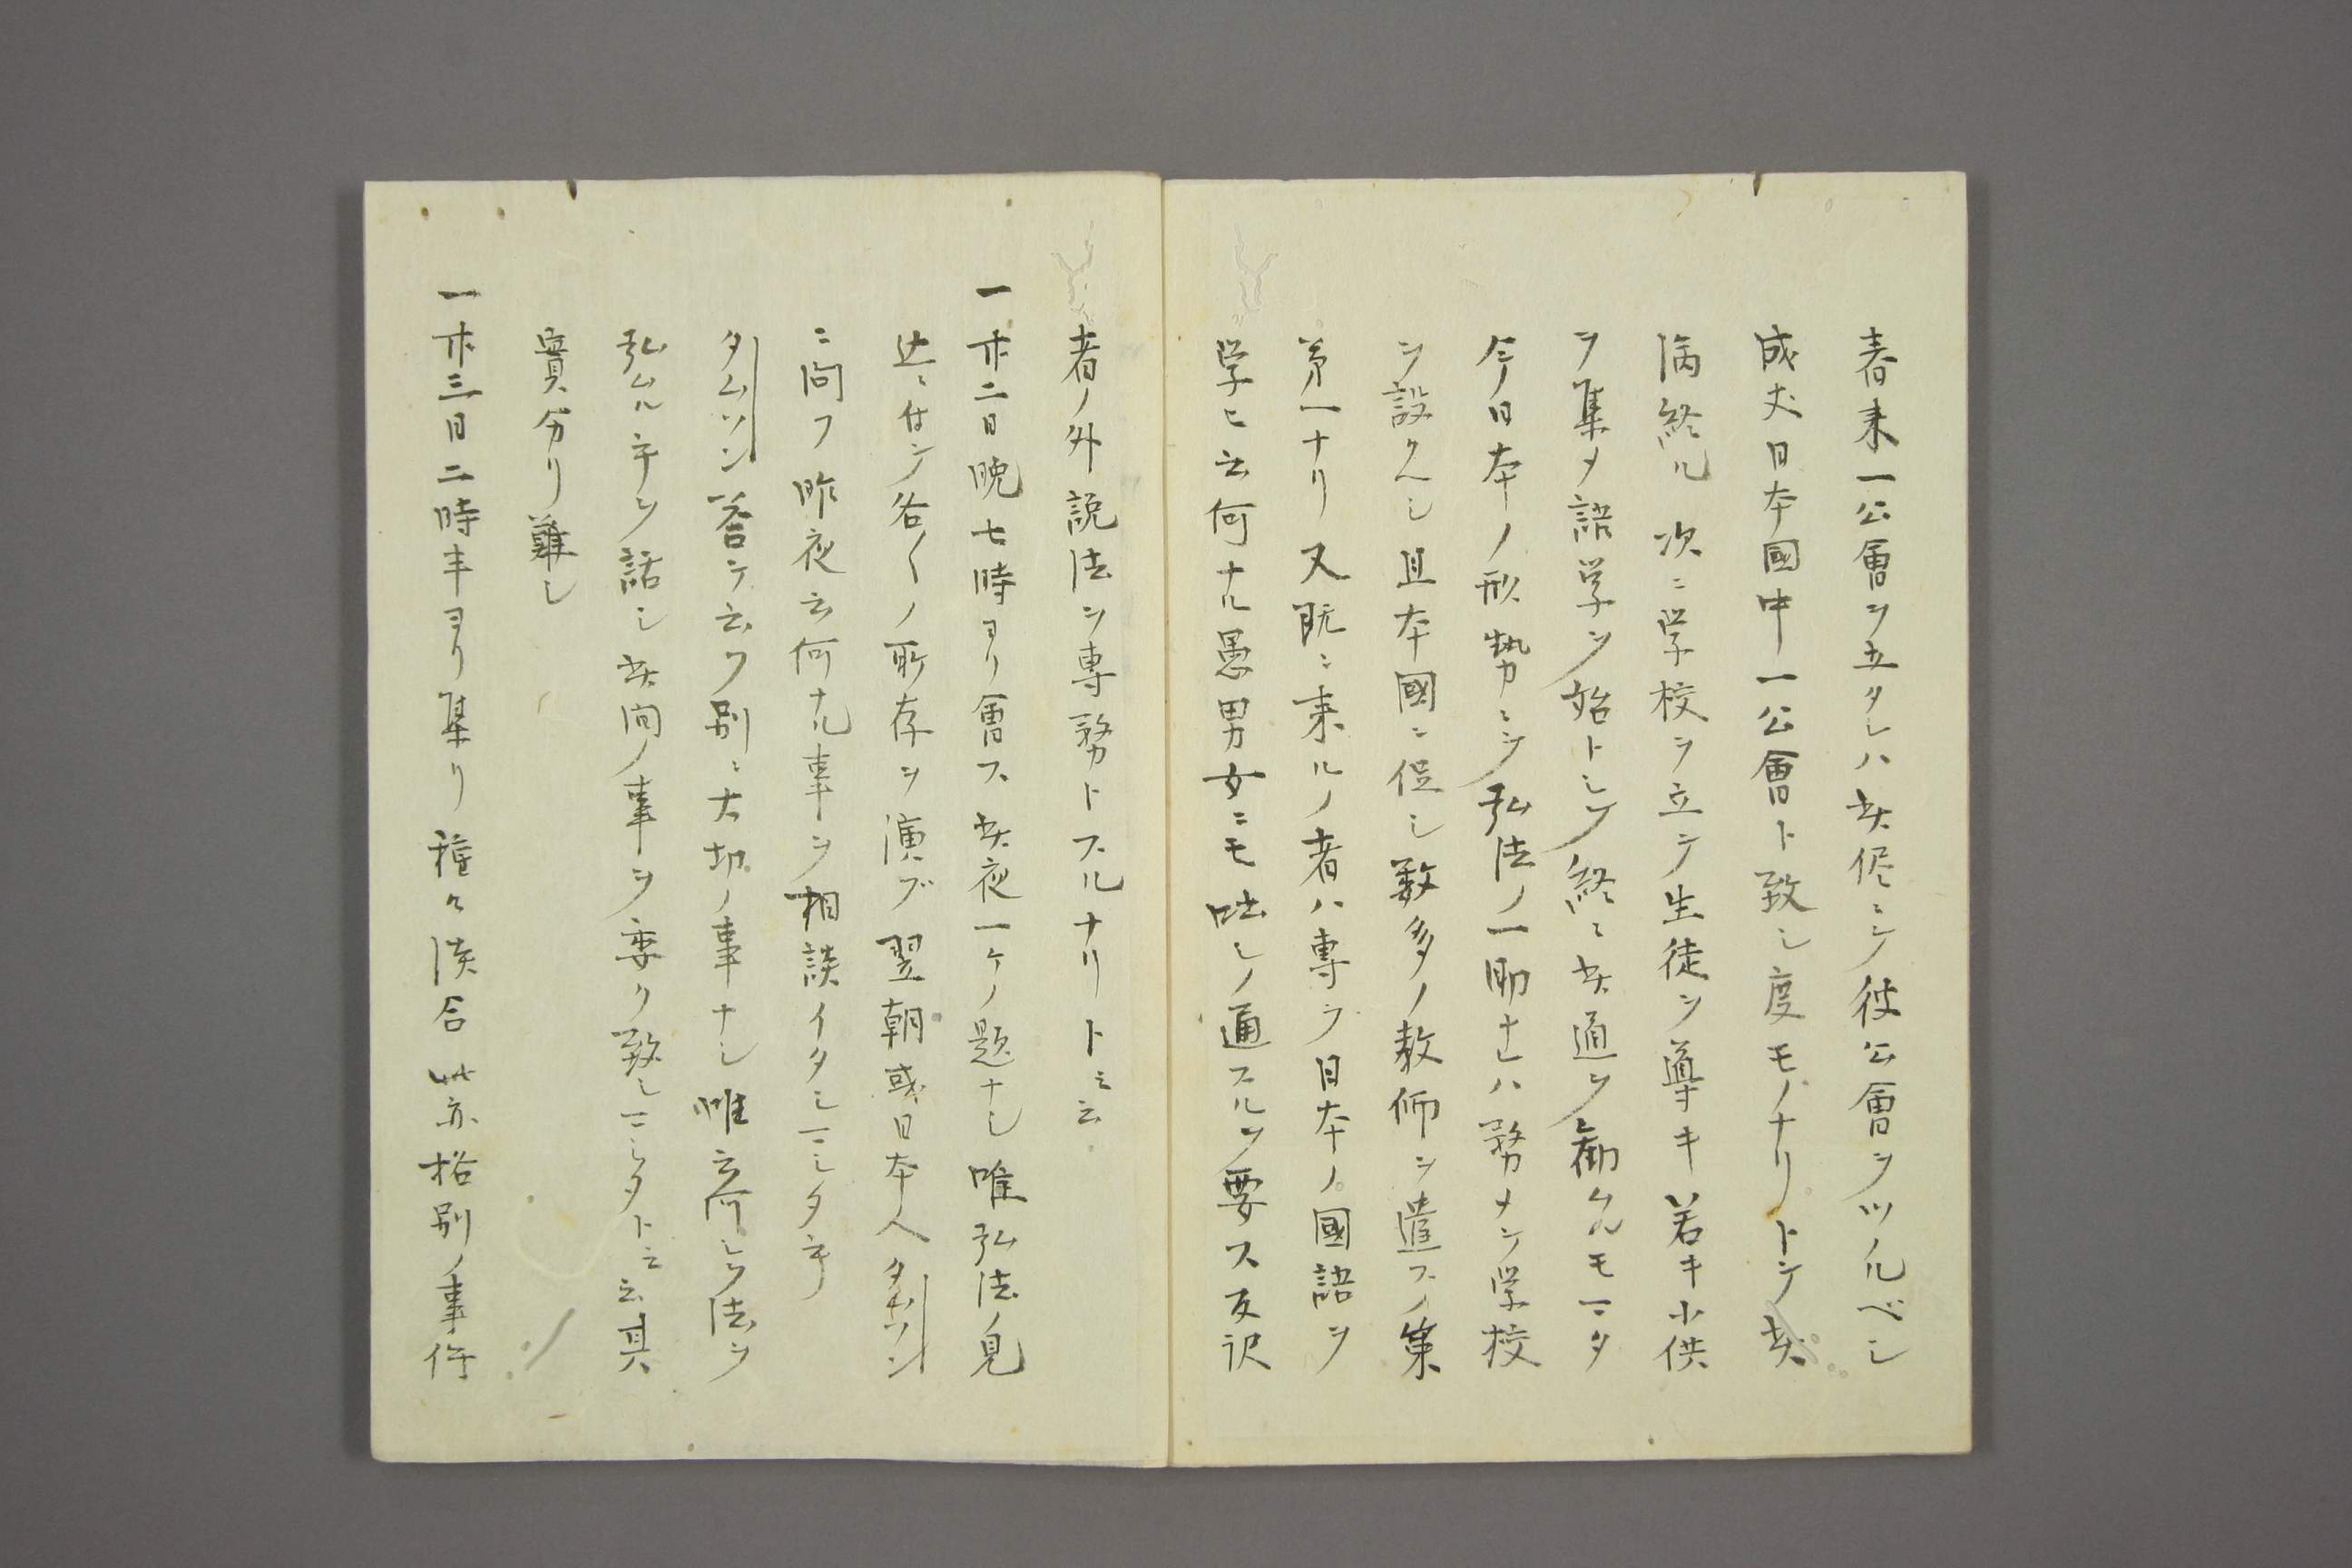 春来一公會ヲ立タレハ其侭ニシテ彼公會ヲツルベシ
成丈日本國中一公會ト致シ度モノナリトテ其
満終ル次ニ学校ヲ立テ生徒ヲ導キ若キ小供
ヲ集メ語学ヲ始トシテ終ニ其道ヲ勧ムルモマタ
今ノ日本ノ形勢ニシテ弘法ノ一助ナレハ務メテ学校
ヲ設クヘシ且本國ニ促シ数多ノ教師ヲ遣スノ策
第一ナリ又既ニ来ルノ者ハ専ラ日本ノ國語ヲ
学ヒ云何ナル愚男女ニモ咄シノ通スルヲ要ス反訳
者ノ外説法ヲ専務トスルナリト云云
一廿二日晩七時ヨリ會ス其夜一ケノ題ナシ唯弘法ノ見
込ニ付テ各〱ノ所存ヲ演ブ翌朝或日本人タムソン
ニ問フ昨夜云何ナル事ヲ相談イタシマシタヰ
タムソン答テ云ク別ニ大切ノ事ナシ惟云何シテ法ヲ
弘ムルヰヲ話シ其間ノ事ヲ委ク致シマシタト云云其
實分リ難シ
一廿三日二時半ヨリ集リ種々談合此亦格別ノ事件